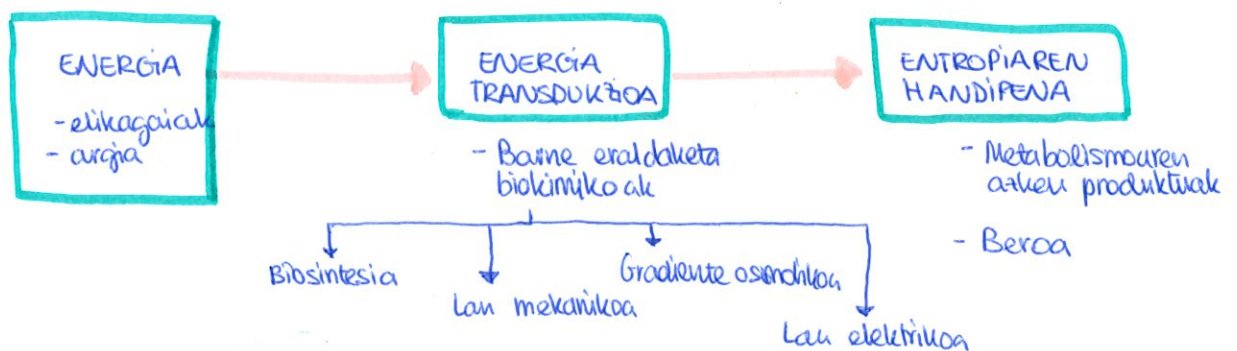 ENERGIA
- elikagaiak
- argia
ENERGIA
TRANSDUKZIOA
- Barne eraldaketa
biokimikoak
Biosintesia
Lan mekanikoa
Gradiente osmotikoa
Lan elektrikoa
ENTROPIAREN
HANDIPENA
- Metabolismoaren
azken produktuak
- Beroa